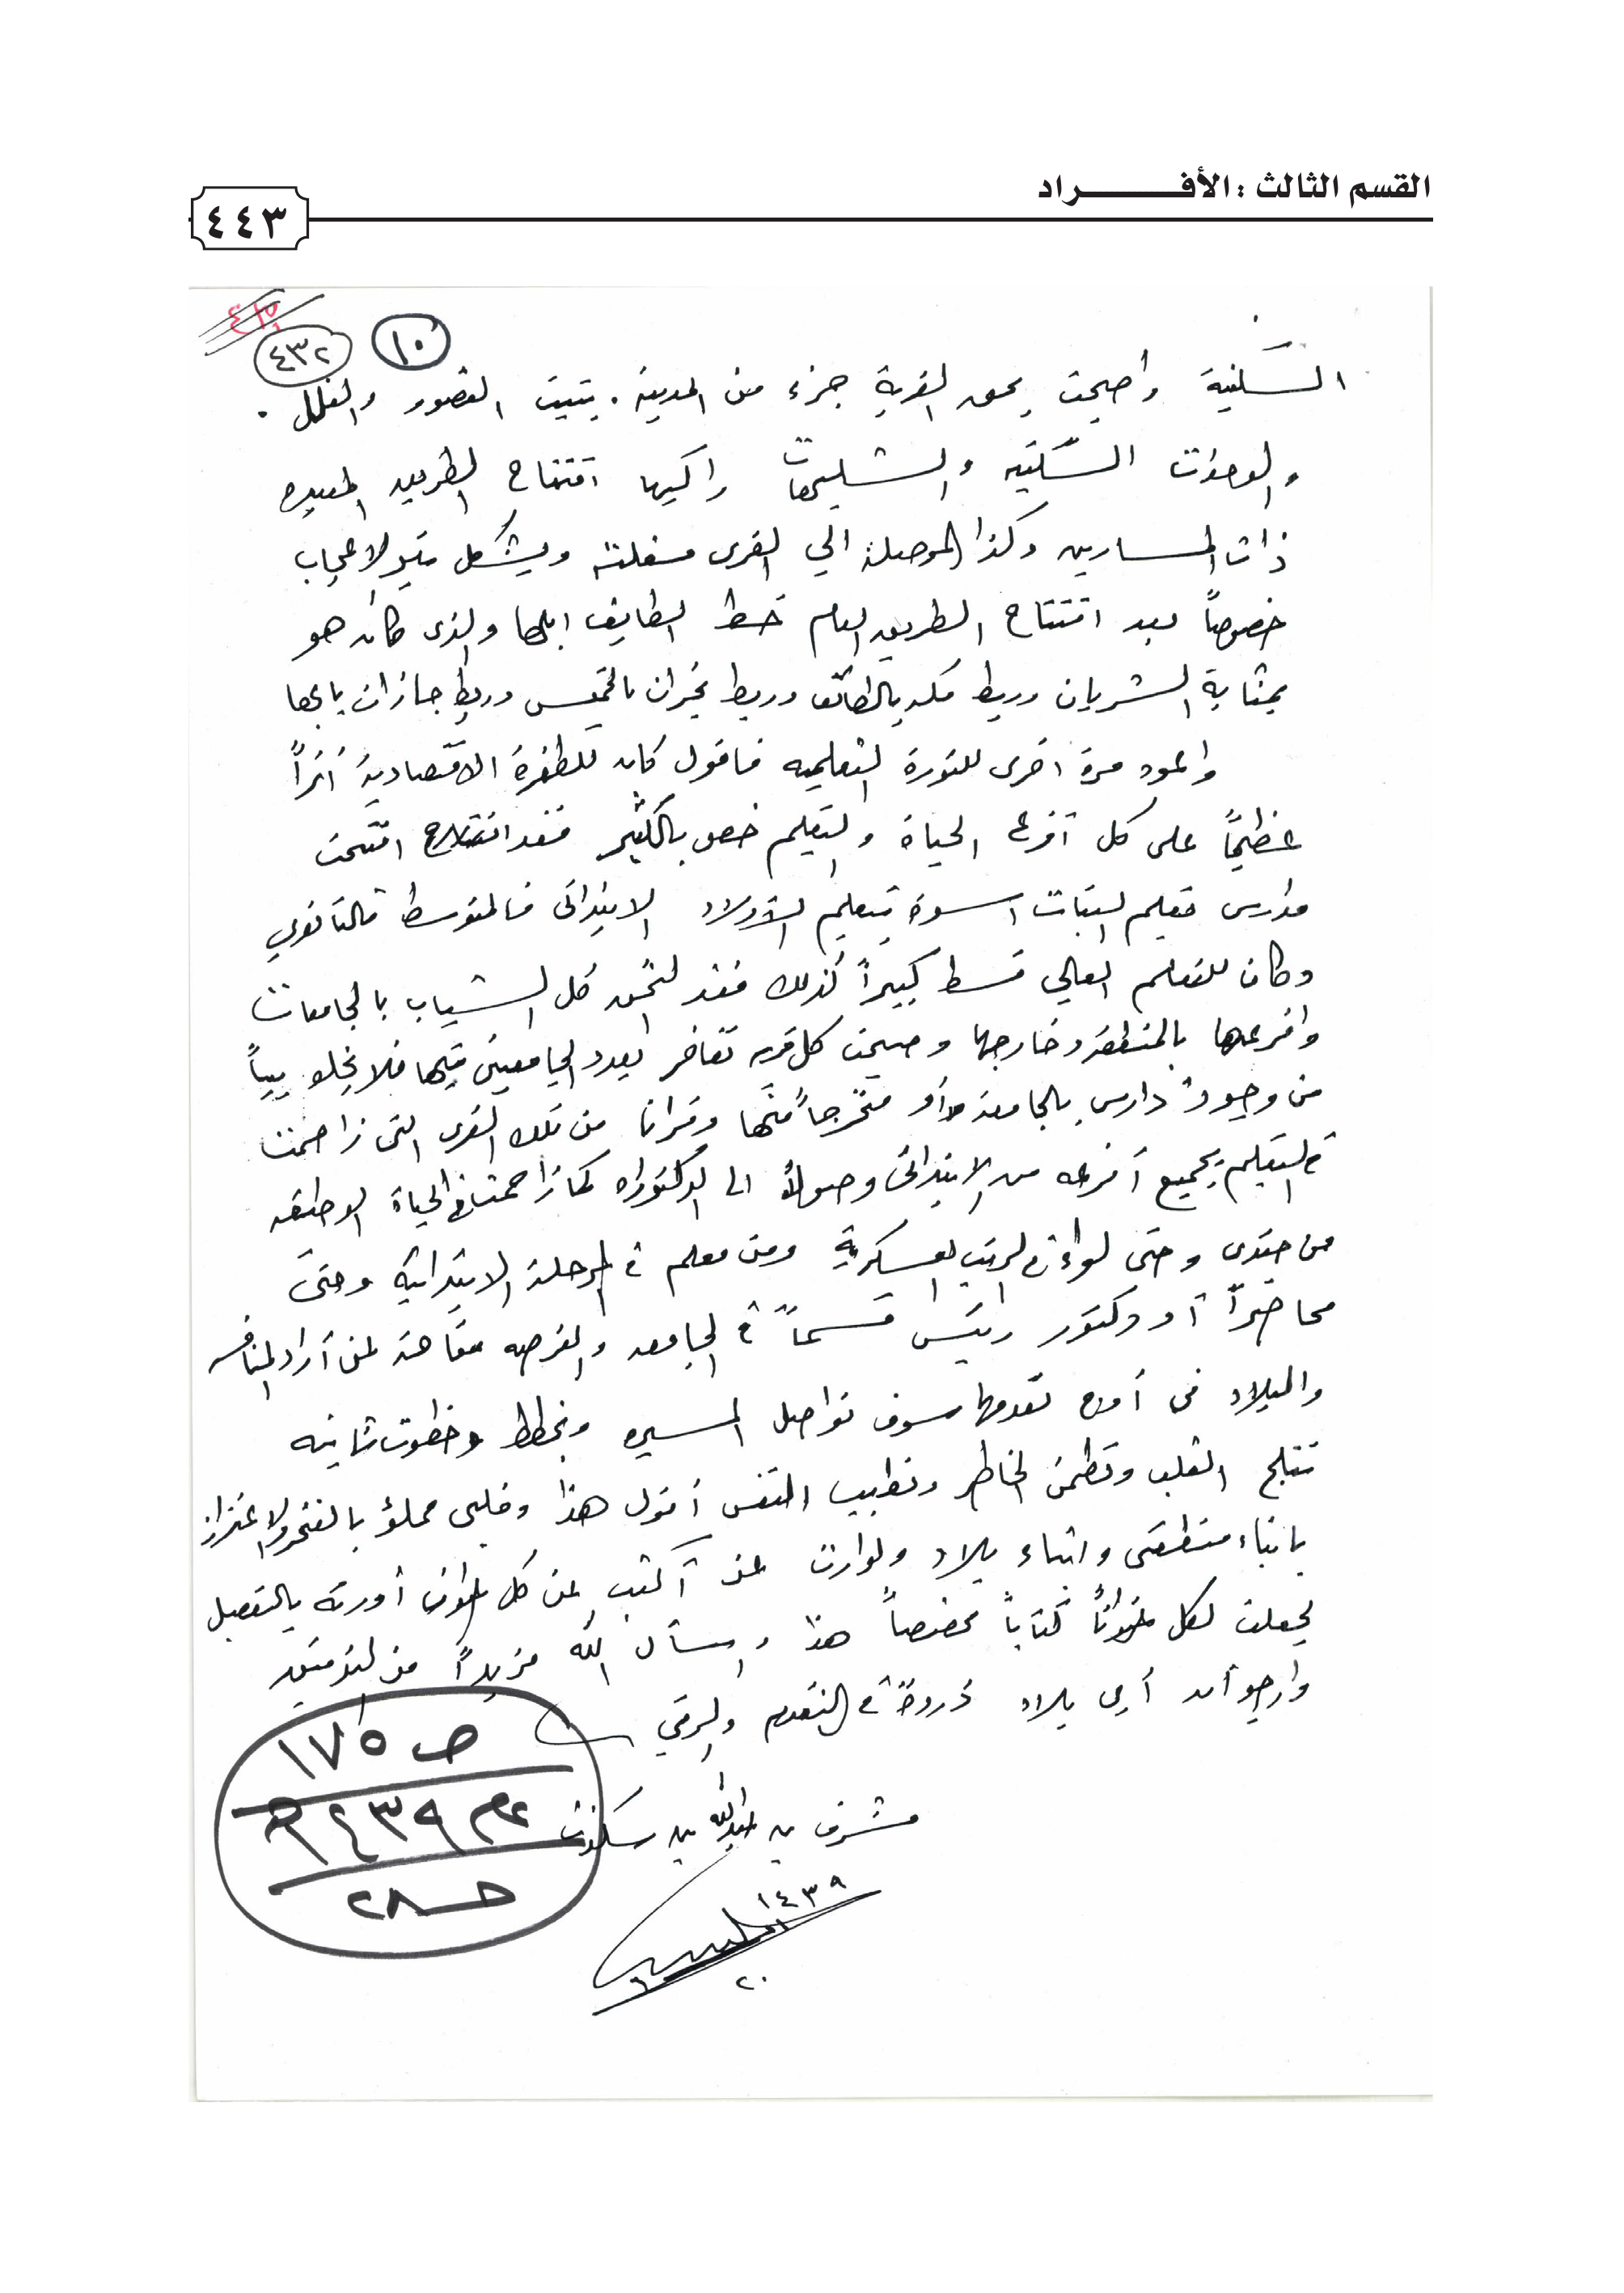 القسم الثالث : الأفـــــــراد
٤٤٣
١٠
٤٣٢
السكنية وأصبحت بحق القرية جزء من المدينة . بنيت القصور والفلل .
والوحدات السكنيه والشليهات راكبها افتتاح الطريق المعبده
ذات المسارين وكذا الموصلة الي القرى مسفلته ويشكل مثير للاعجاب
خصوصاً بعد افتتاح الطريق العام خط الطايف ابها والذى كان هو
بمثابة الشريان وربط مكه بالطائف وربط نجران بالخميس وربط جازان بابها
واعود مرة اخرى للثورة التعلميه فاقول كان للطفرة الاقتصادية أثراً
عظيماً على كل أفرع الحياة والتعليم خص بالكثير فقد افتتحت
مدارس تعليم البنات اسوة بتعليم الأولاد الابتدائى فالمتوسط فالثانوي
وكان للتعلم العالي قسط كبيراً كذلك فقد لتحق كل الشباب بالجامعات
وافرعها بالمنطقه وخارجها وصبحت كل قريه تفاخر بعدد الجامعيين فيها فلا يخلو بيتاً
من وجود دارس بالجامعه أو متخرجاً منها وقرانا من تلك القرى التى زاحمت
في التعليم بجميع أفرعه من الابتدائى وصولاً الى الدكتوراه كما زاحمت في الحياة الوظيفه
من جندى وحتى لواء في الرتب العسكرية ومن معلم في المرحلة الابتدائية وحتى
محاضراً أو دكتور رئيس قسماً في الجامعه والفرصه متاحة لمن أراد المنافسه
والبلاد فى أوج تقدمها سوف تواصل المسيره وبخطط وخطوت ثابته
تثلج القلب وتطمئن الخاطر وتطيب النفس أقول هذا وقلبى مملؤ بالفخر والاعتزاز
بابناء منطقتى وابناء بلاد ولو اردت عن أكتب عن كل عنوان أورته بالتفصيل
لجعلت لكل عنواناً كتاباً مخصصاً هذا واسأل الله مزيداً من التوفيق
وارجو أن أرى بلاد ذروة في التقدم والرقي
مشرف بن عبدالله بن
١٤٣٩
٢٠
ص ١٧٥
عام ١٤٣٩هـ
حـ ٢٨